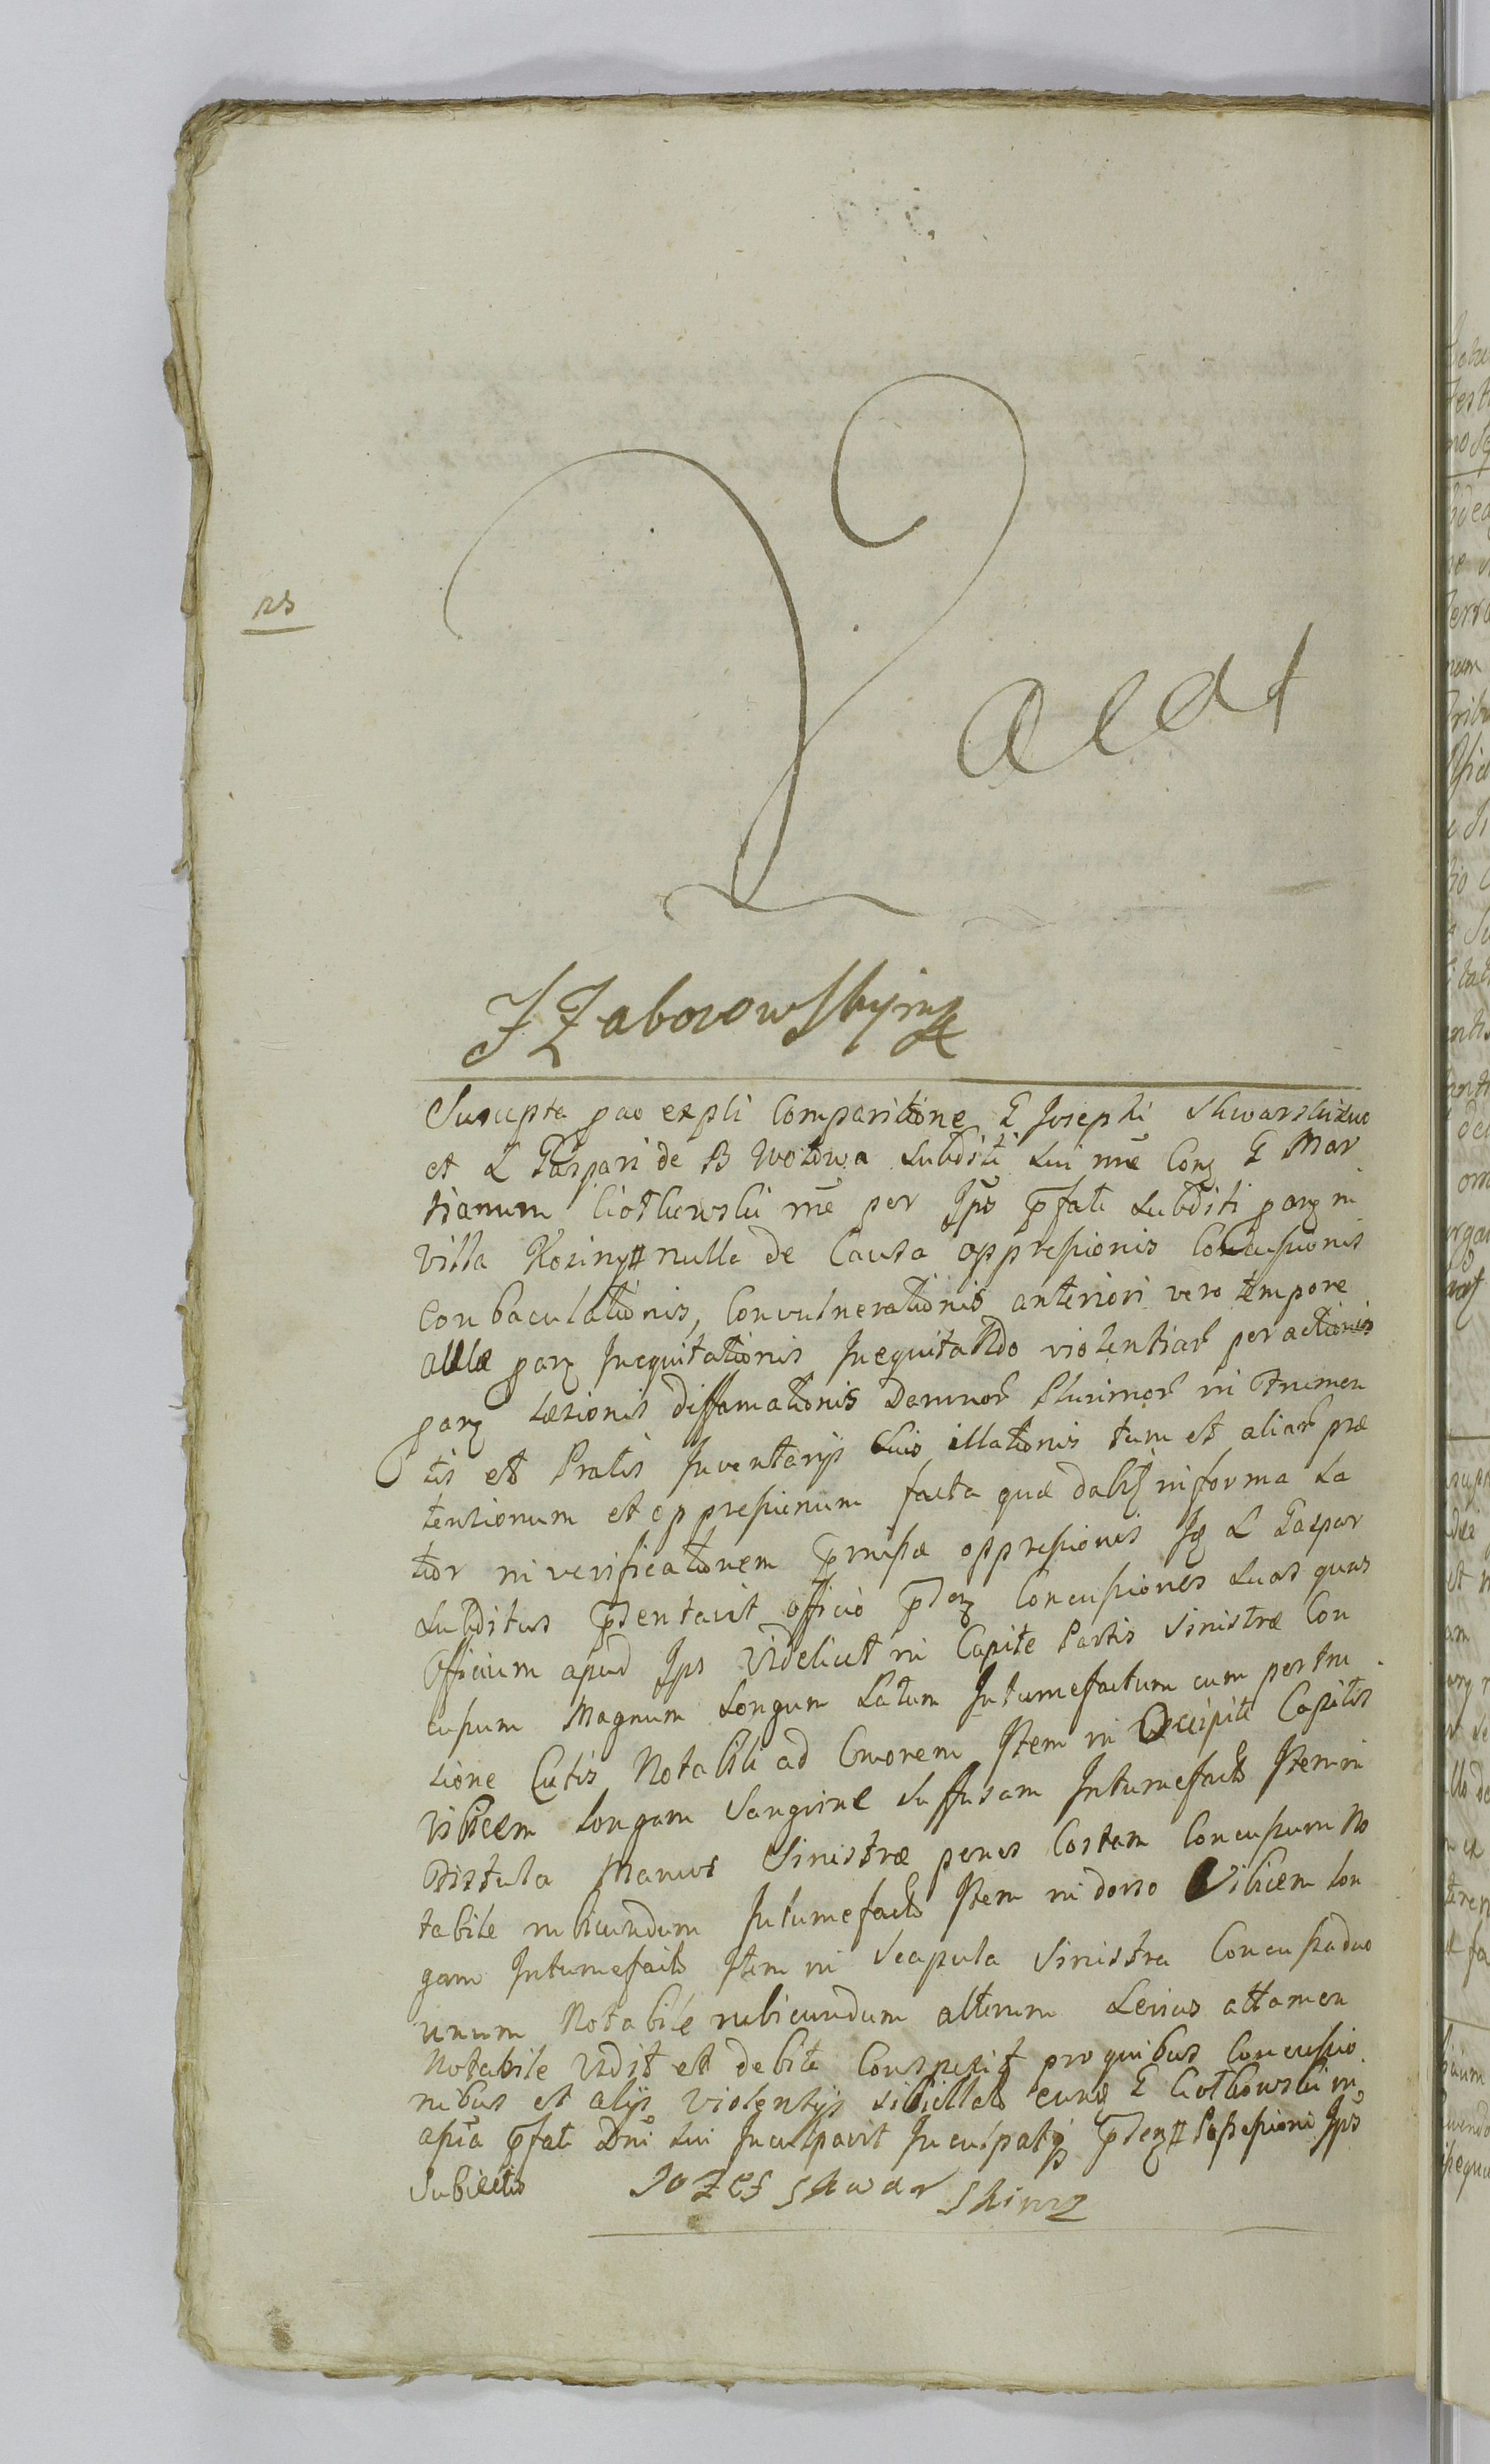 23
Vacat
JZaborowSkymp
Suscepta pao expli Comparitione G Josephi Skwarski suo
et L Gaspari de B Wotowa Subditi sui nne Conq G Mar
tianum Ciotkowski nne per Jps pfati Subditi parq in
villa Kosiny nulla de Causa oppressionis Concussionis
Conbaculationis, Convulnerationis anteriori vero tempore
allae parq Inequitationis Inequitando violentiar peractionis
parq Laesionis diffamationis Damnor Plurimor in Frumen
tis et Pratis Inventarijs suis illationis tum et aliar prae
tensionum et oppressionum facta quae dabit in forma La
tior in verificationem praemissae oppressionis Iq L Gaspar
Subditus pntavit officio pntq Concussiones suas quas
Officium apud Jps videlicet in Capite Partis Sinistrae Con
cussum Magnum Longum Latum Intumefactum cum pertru
sione Cutis Notabili ad Cruorem Item in Occipite Capitis
vibicem Longam Sanguine Suffusam Intumefacto Item in
Fistula Manus Sinistrae penes Costam Concussum No
tabile rubicundum Intumefacto Item in dorso Vibicem Lon
gam Intumefacto Item in Scapula Sinistra Concussa duo
unum Notabile rubicundum alterum Levius attamen
Notabile Vidit et debite Conspexit pro quibus Concussio
nibus et alijs violentijs Sibi illatis eunq G Ciotkowski in
apia pfati Dni Sui Inculpavit Inculpatq Possessioni Jps
Subiectis Jozef Skwar Skimp